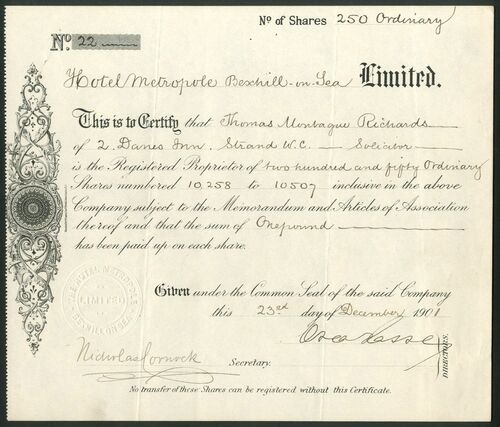 No of Shares 250 Ordinary
No. 22
Hotel Metropole Bexhill-on-Sea Limited.
This is to Certify that Thomas Montague Richards
of 2. Danes Inn. Strand W.C. Solicitor
is the Registered Proprietor of two hundred and fifty Ordinary
Shares numbered 10258 to 10507 inclusive in the above
Company subject to the Memorandum and Articles of Association
thereof and that the sum of One pound
has been paid up on each share.
Given under the Common Seal of the said Company
this 23rd day of December 1901
THE HOTEL METROPOLE
LIMITED
BEXHILL ON SEA
DIRECTORS.
Nicholas Cornock
Secretary.
No transfer of these Shares can be registered without this Certificate.